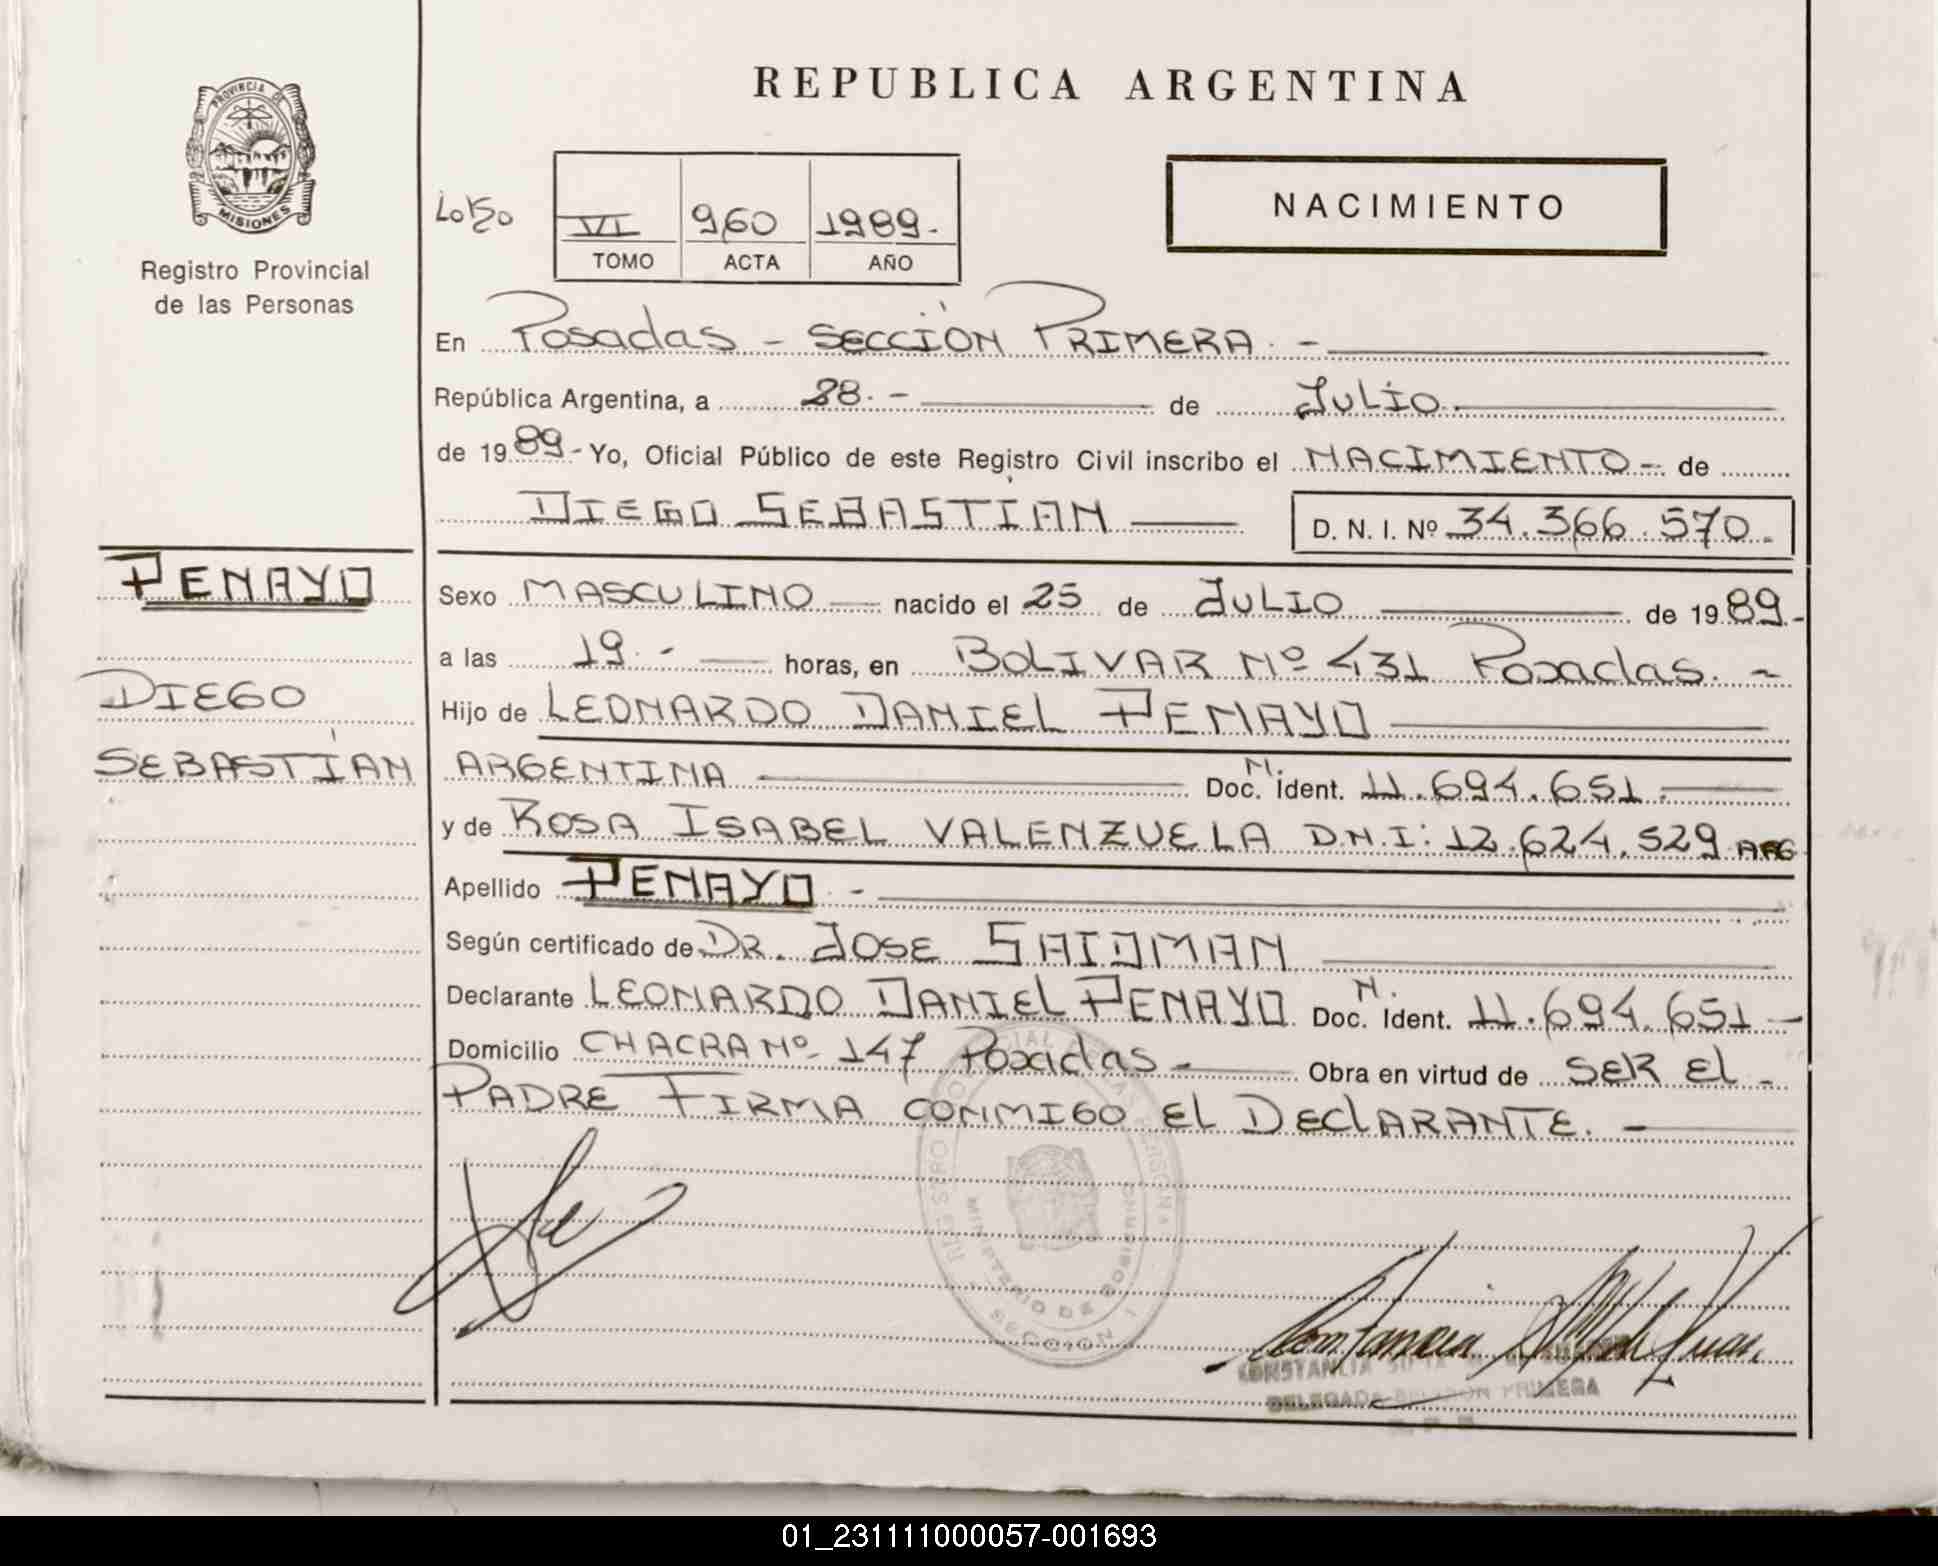 REPUBLICA ARGENTINA
PROVINCIA DE
MISIONES
Registro Provincial
de las Personas
VI 960 1989.-
TOMO ACTA AÑO
NACIMIENTO
En Posadas - SECCIÓN PRIMERA. -
República Argentina, a 28. - de JULIO.
de 1989.- Yo, Oficial Público de este Registro Civil inscribo el NACIMIENTO - de
DIEGO SEBASTIÁN D. N. I. Nº 34.366.570.-
PENAYO
DIEGO
SEBASTIÁN
Sexo MASCULINO nacido el 25 de JULIO de 1989.-
a las 19. - horas, en BOLIVAR Nº 431 Posadas. -
Hijo de LEONARDO DANIEL PENAYO
ARGENTINA Doc. N. Ident. 11.694.651.
y de ROSA ISABEL VALENZUELA D.N.I: 12.624.529 ARG
Apellido PENAYO. -
Según certificado de DR. JOSE SAIDMAN
Declarante LEONARDO DANIEL PENAYO Doc. N. Ident. 11.694.651 -
Domicilio CHACRA Nº 147 Posadas - Obra en virtud de SER EL -
PADRE FIRMA CONMIGO EL DECLARANTE. -
MINISTERIO DE GOBIERNO
SECCION 1
CONSTANCIA
DELEGADA SECCION PRIMERA
01_231111000057-001693